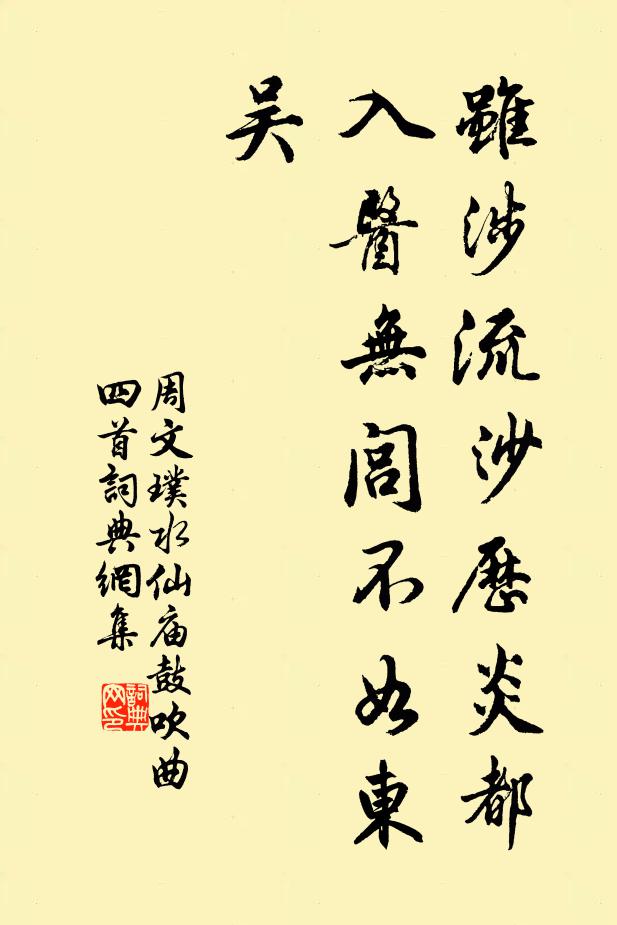 雖涉流沙歷炎都
入醫無閭不如東
吳
周文璞水仙庙鼓吹曲
四首詞典網集
詞典
网印